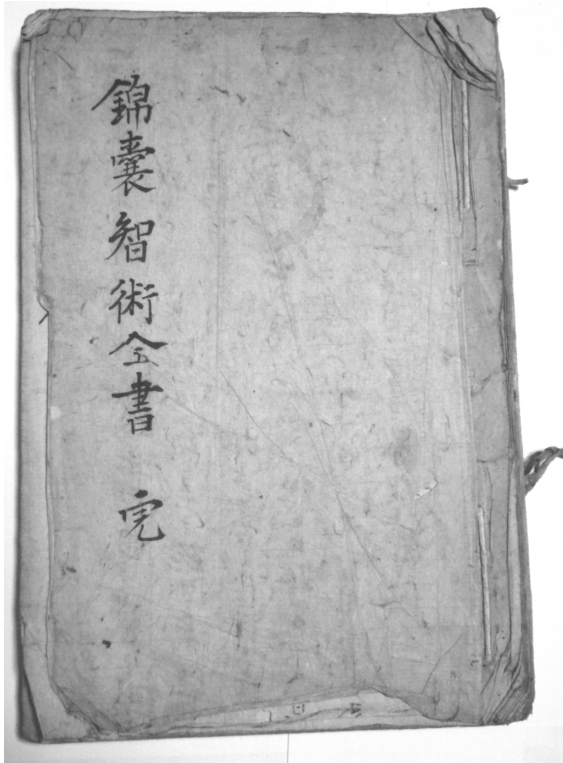 錦囊智術全書 完